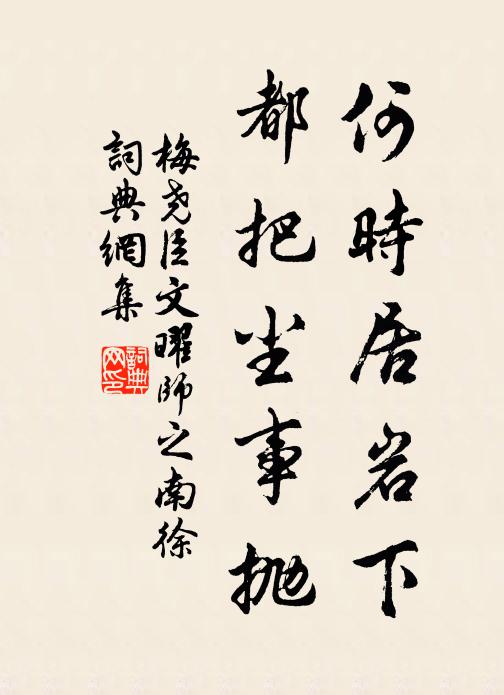 何時居岩下
都把尘事抛
梅尧臣文曜师之南徐
詞典網集
詞典网印